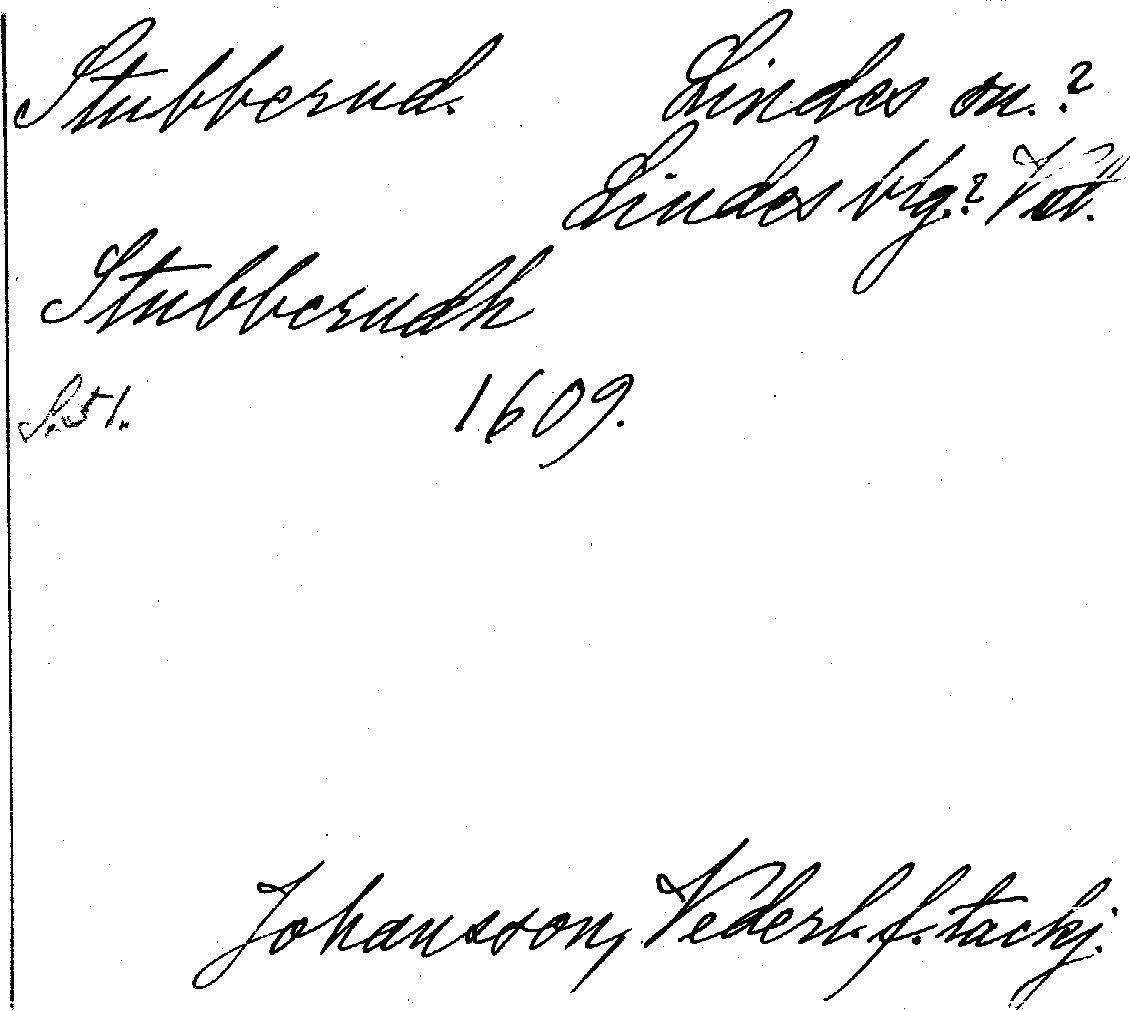 Stubberud. Lindes sn.?
Lindes blg.? Vstl.
Stubberudh
S. 51. 1609.
Johansson, Vederl. f. tackj.